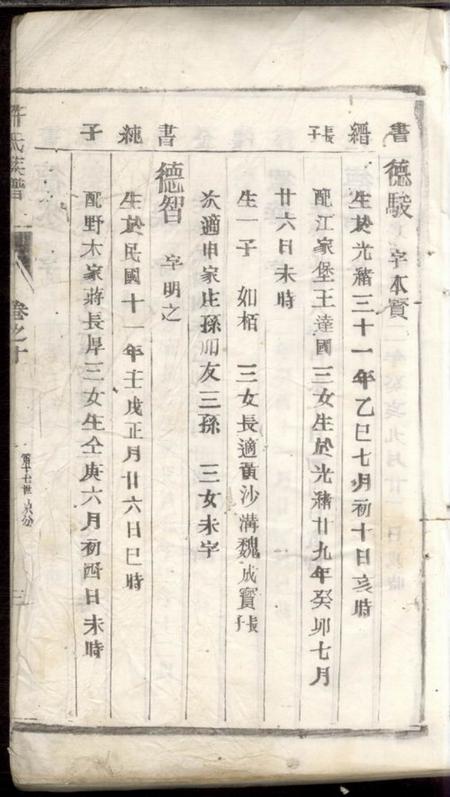 書 德駿 字本賓
縉 生於光緒三十一年乙巳七月初十日亥時
長子 配江家堡王達國三女生於光緒廿九年癸卯七月
廿六日未時
生一子 如栢 三女長適黃沙溝魏成寳長子
次適申家庄孫加友三孫 三女未字
書 德智 字明之
純 生於民國十一年壬戌正月廿六日巳時
子 配野木家蔣長厚三女生仝庚六月初四日未時
許氏族譜 卷之十